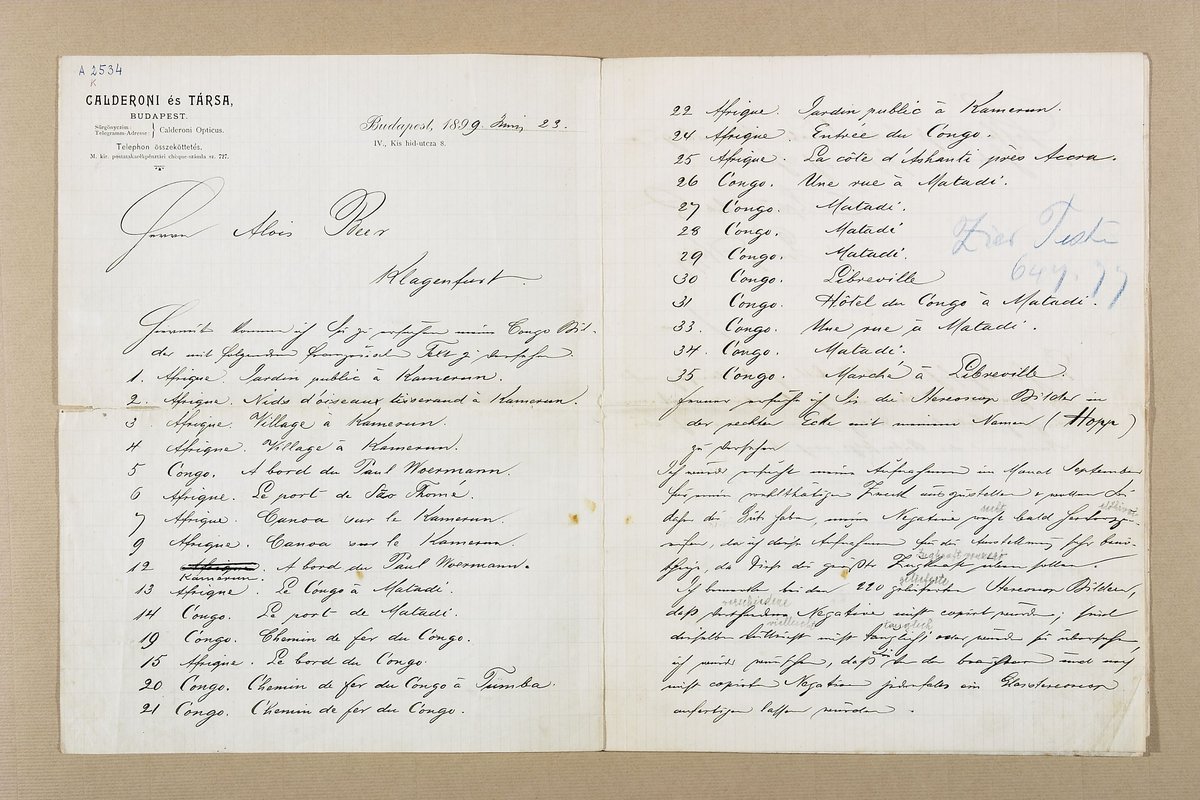 A 2534
K
CALDERONI és TÁRSA,
BUDAPEST.
Sürgönyczim:
Telegramm-Adresse
Calderoni Opticus.
Telephon összeköttetés.
M. kir. postatakarékpénztári chèque-számla sz. 727.
Budapest, 1899. 23.
IV., Kis hid-utcza 8.
Herrn Alois Beer
Klagenfurt.
Hiermit komme ich Sie zu ersuchen meine Congo Bil-
der mit folgendem französisch Text zu versehen.
1. Afrique. Jardin public à Kamerun.
2. Afrique. Nids d'oiseaux tisserand à Kamerun.
3 Afrique. Village à Kamerun.
4 Afrique. Village à Kamerun.
5 Congo. A bord du Paul Woermann.
6 Afrique. Le port de São Thomé.
7 Afrique. Canoa sur le Kamerun.
9 Afrique. Canoa sur le Kamerun.
12 Afrique. A bord du Paul Woermann.
Kamerun.
13 Afrique. Le Congo à Matadi.
14 Congo. Le port de Matadi.
19 Congo. Chemin de fer du Congo.
15 Afrique. Le bord du Congo.
20 Congo. Chemin de fer du Congo à Tumba.
21 Congo. Chemin de fer du Congo.
22 Afrique. Jardin public à Kamerun.
24 Afrique. Entrée du Congo.
25 Afrique. La côte d'Ashanti près Accra.
26 Congo. Une rue à Matadi.
27 Congo. Matadi.
28 Congo. Matadi
29 Congo. Matadi.
30 Congo. Libreville
31 Congo. Hôtel du Congo à Matadi.
33. Congo. Une rue à Matadi.
34. Congo. Matadi.
35 Congo. Marché à Libreville.
ferner ersuche ich Sie die Stereoscop Bilder in
der rechten Ecke mit meinem Namen (Hopp)
zu versehen
Ich würde meine Aufnahmen im Monat September
für einen wohlthätigen Zweck ausgestellen
haben, meine Negative recht bald
da ich diese Aufnahmen für die Ausstellung sehr
da diese die größte Zugkraft
Zugkraft
Ich bemerke bei den 220 gelieferten Stereoscop Bildern,
gelieferte
daß verschiedene Negative nicht copirt wurden; sind
verschiedene
vielleicht
tauglich
dieselben vielleicht nicht tauglich, oder wurden sie übersehen
ich würde wünschen, daß Sie von den
nicht copirten Negativen jedenfalls ein Glasstereoscop
anfertigen lassen würden.